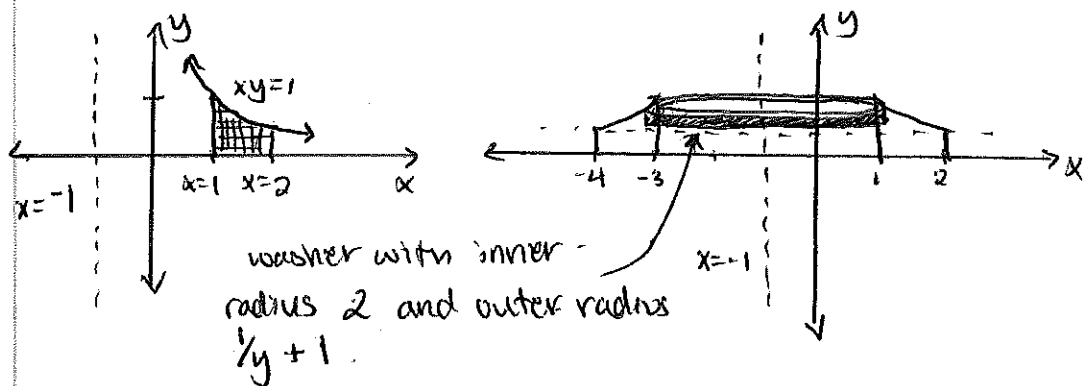 y
xy=1
x=-1
x=1
x=2
x
y
-4
-3
1
2
x
x=-1
washer with inner
radius 2 and outer radius
1/y + 1.